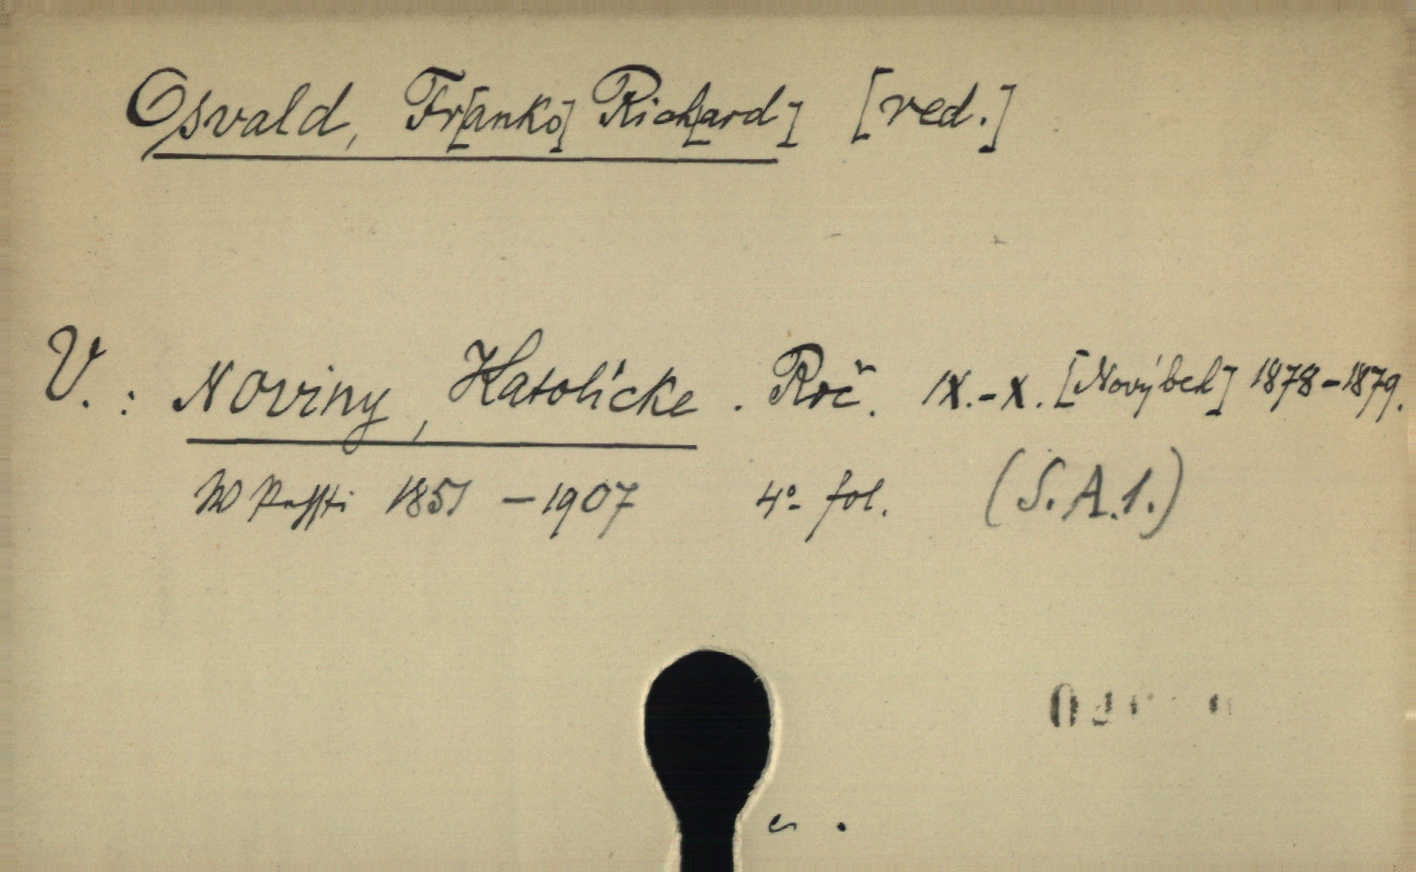 Osvald, Fr[anko] Rich[ard] [red.]
V. : Noviny, Katolícke. Roč. IX.-X. [Nový beh] 1878-1879.
1851 - 1907 4°- fol. (S.A.1.)